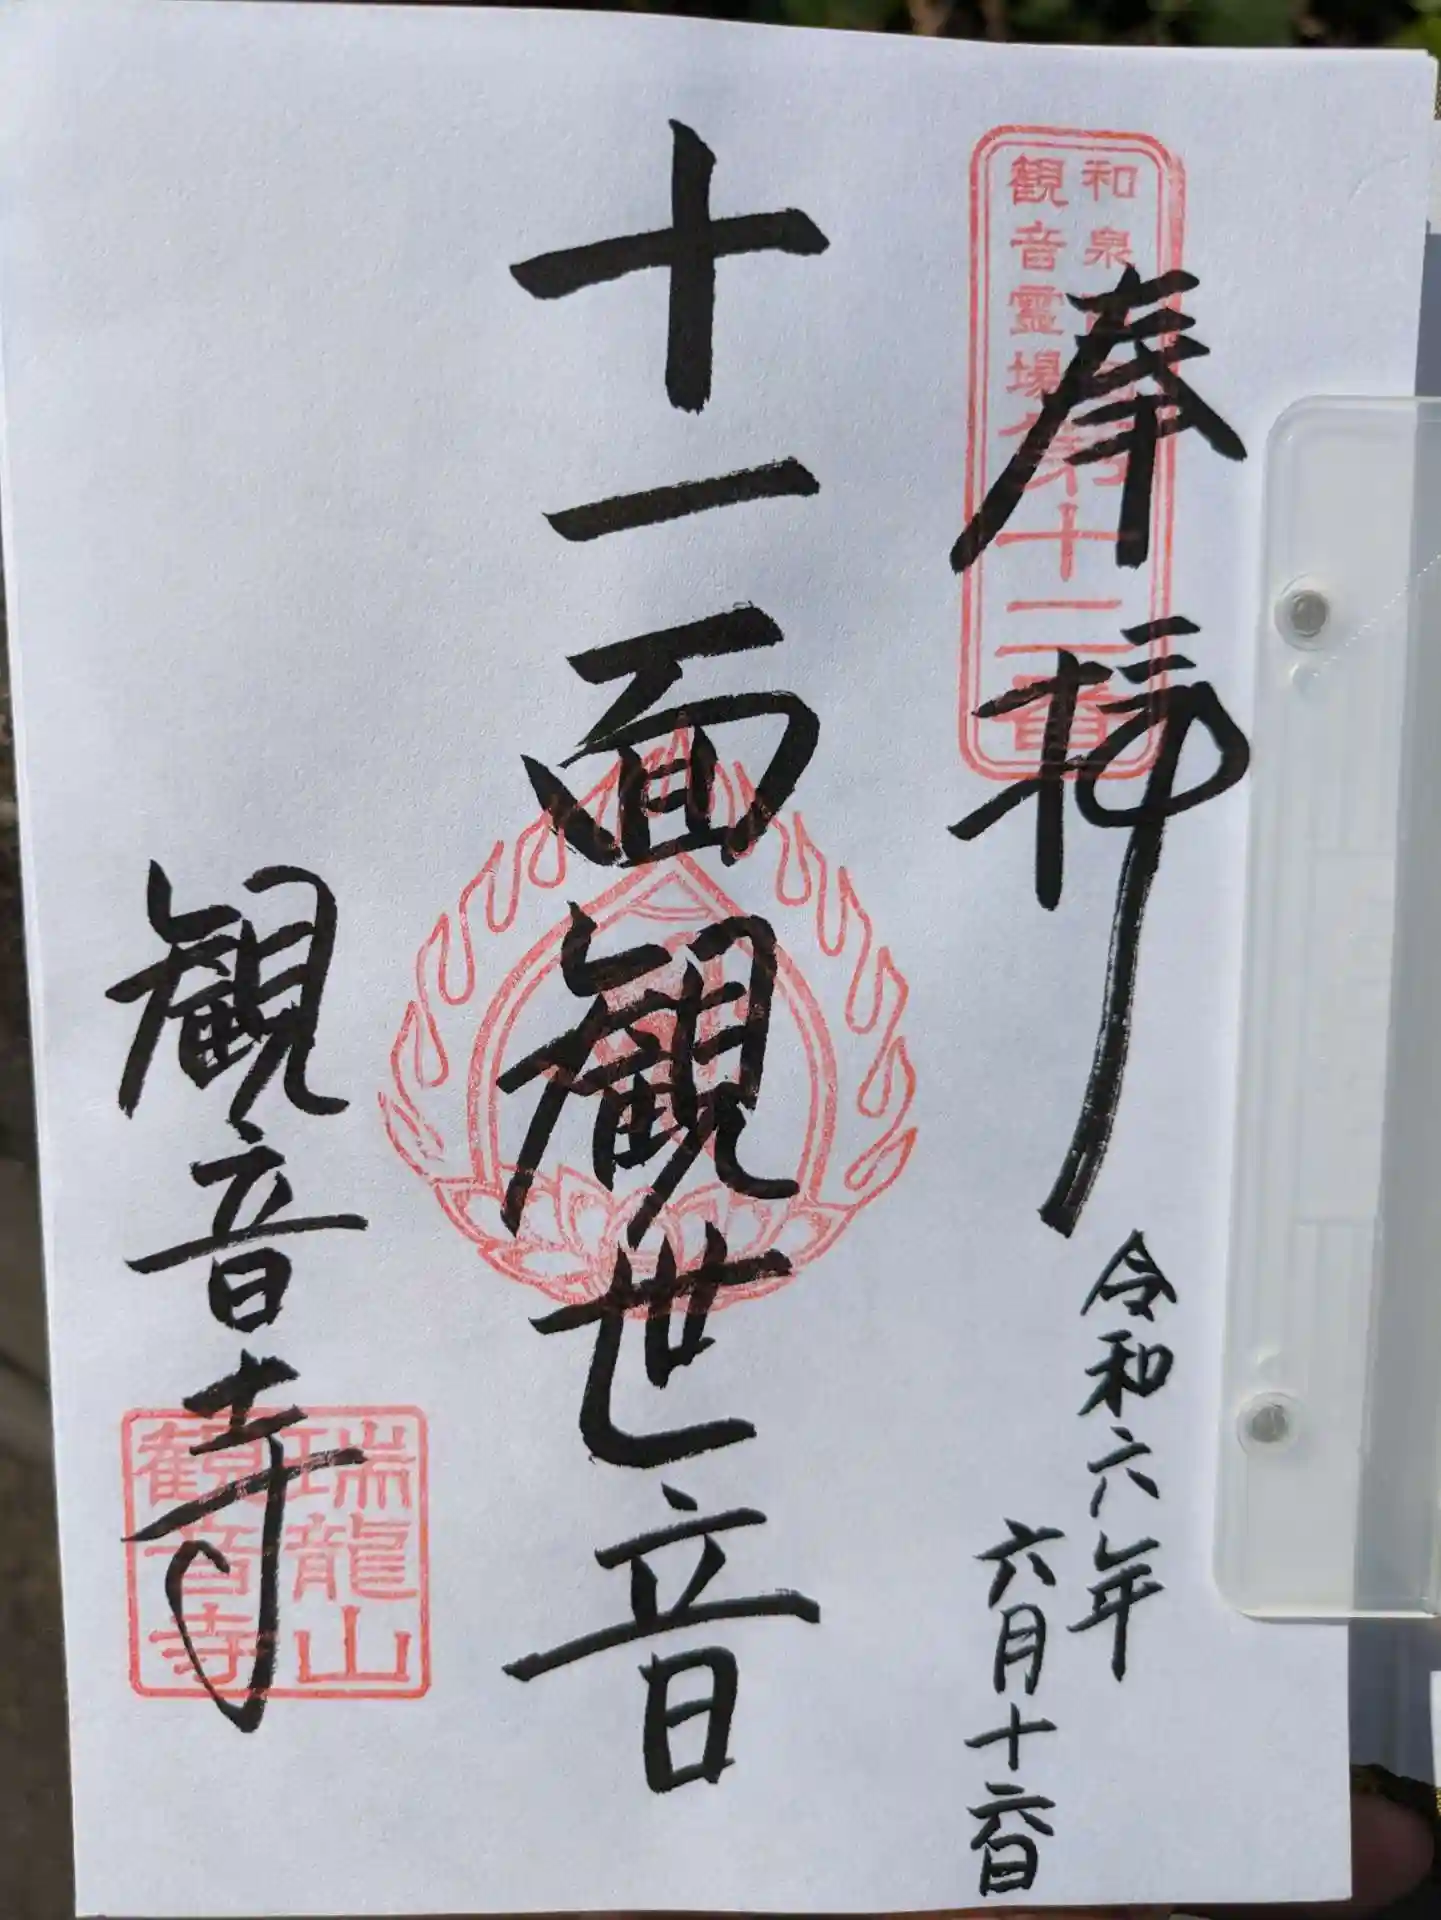 奉拝
和泉西国
観音霊場
第十二番
令和六年
六月十六日
十一面観世音
観音寺
瑞龍山
観音寺